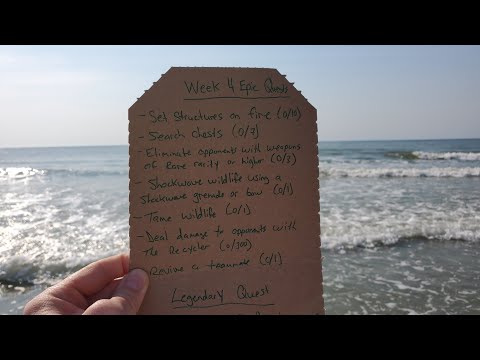 Week 4 Epic Quests
- Set structures on fire (0/10)
- Search Chests (0/7)
- Eliminate opponents with weapons
of Rare rarity or higher (0/3)
- Shockwave wildlife using a
shockwave grenade or bow (0/1)
- Tame wildlife (0/1)
- Deal damage to opponents with
The Recycler (0/300)
- Revive a teammate (0/1)
Legendary Quest